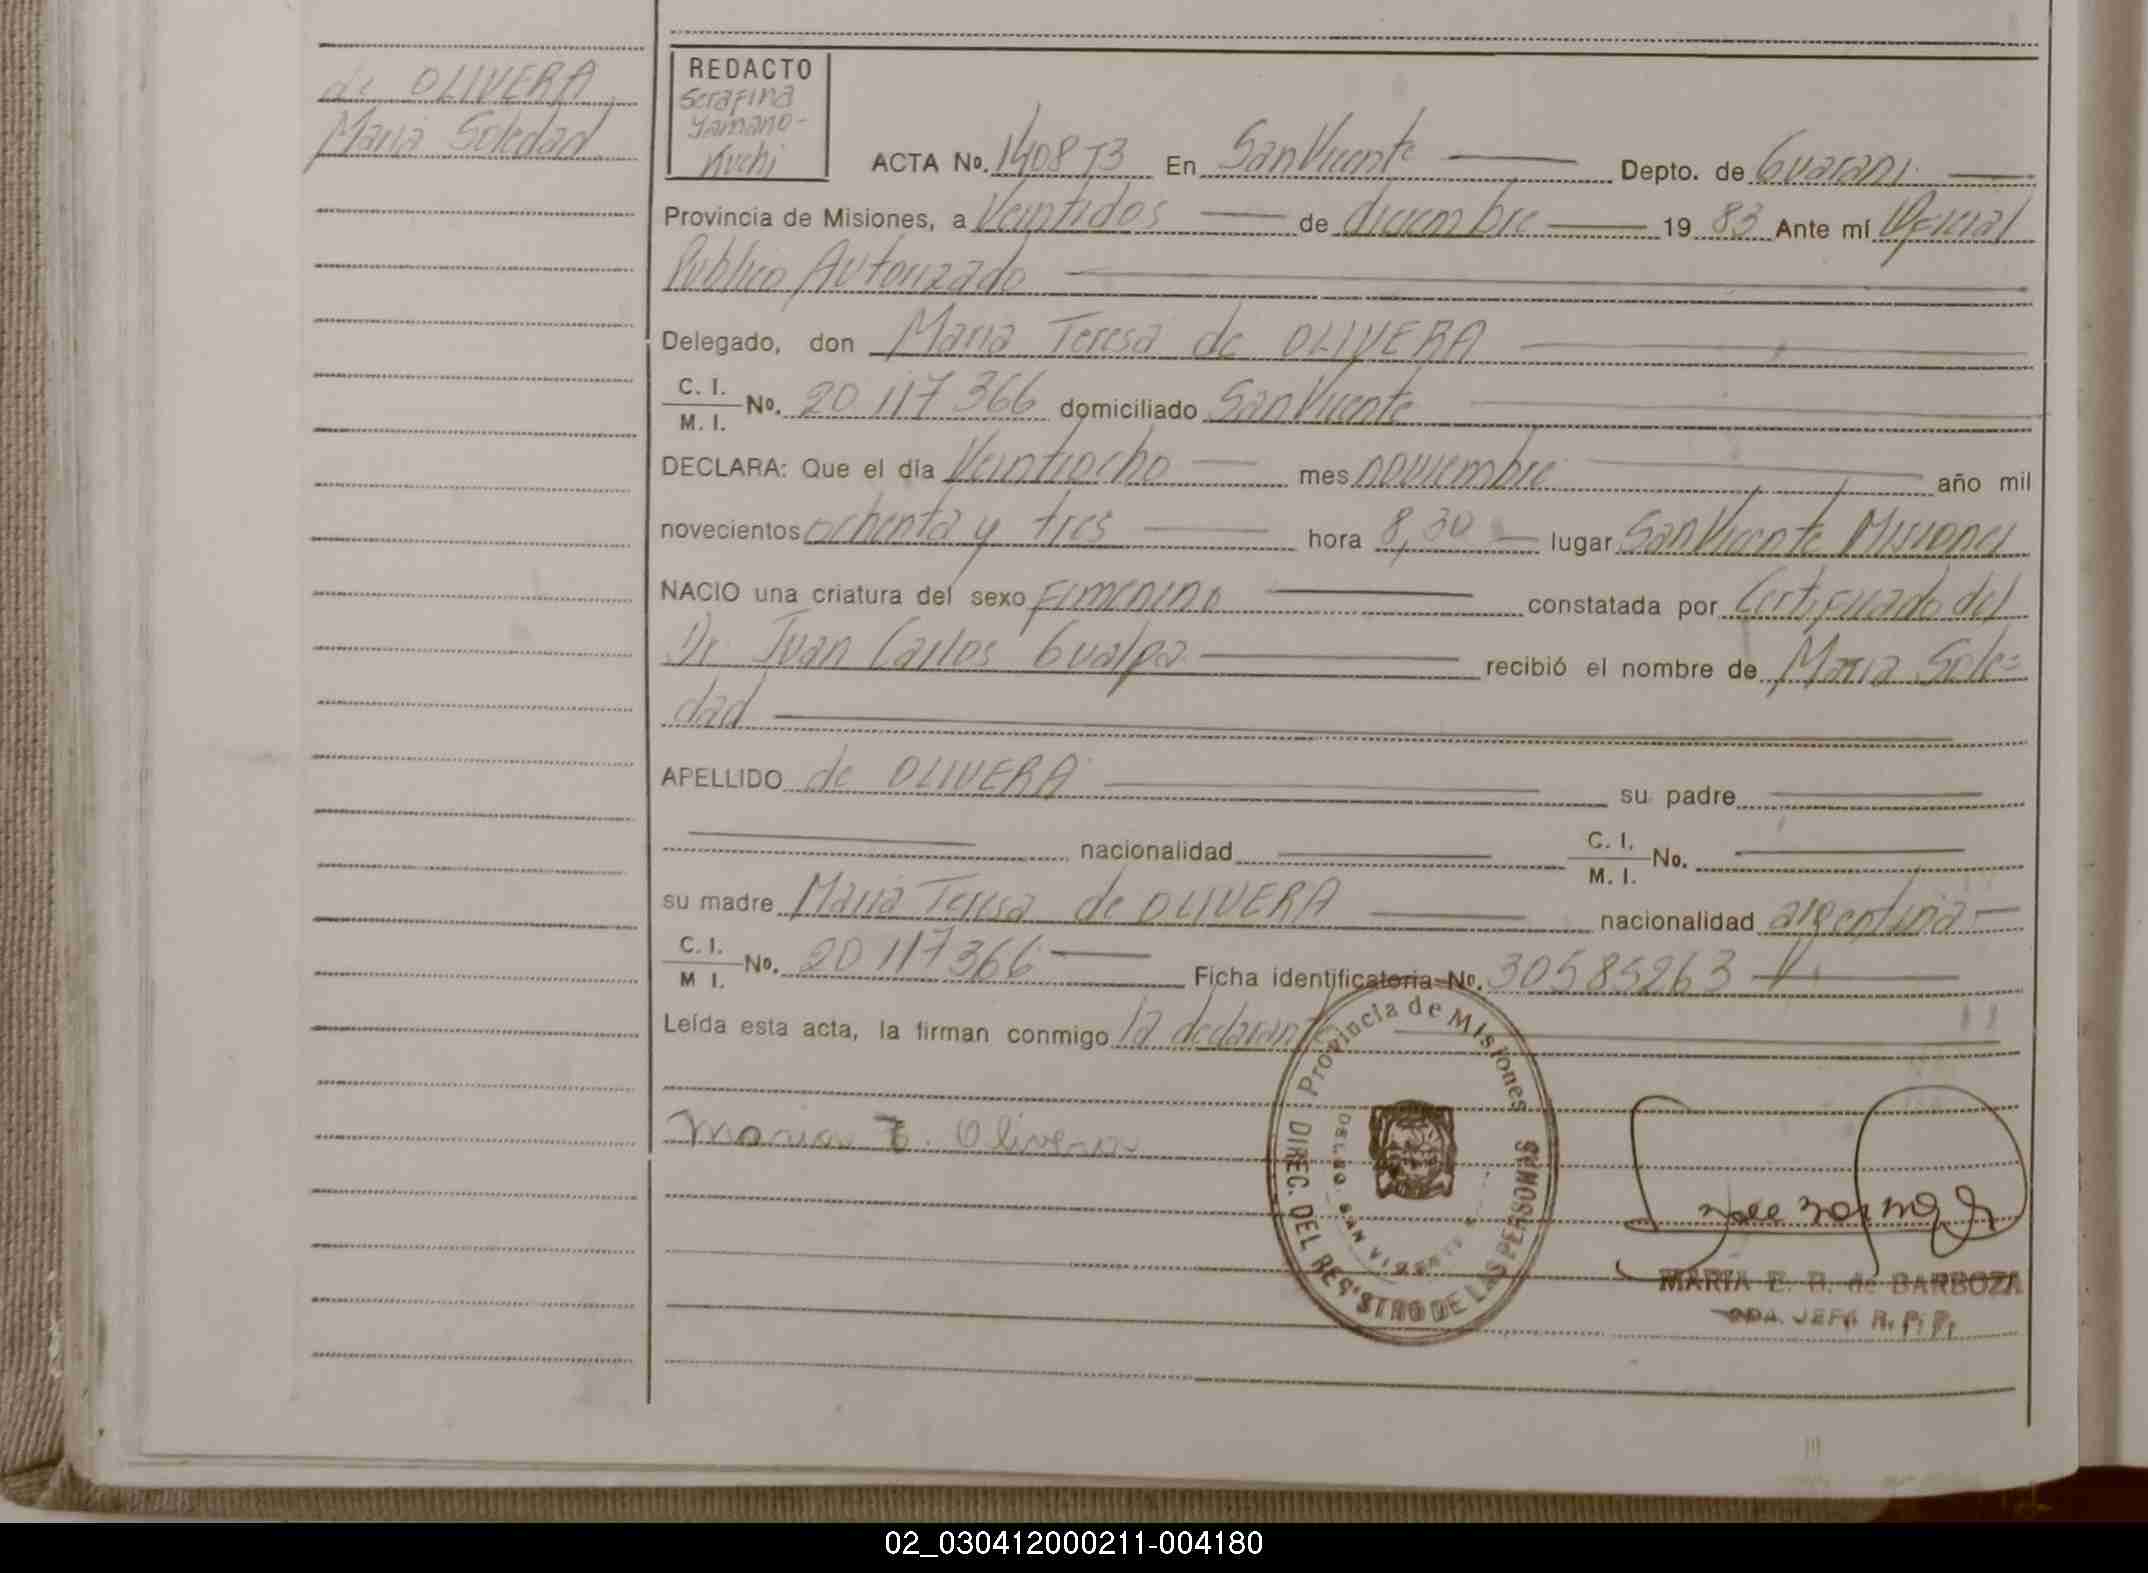 de OLIVERA
Maria Soledad
REDACTO
Serafina
Yamano-
Kuchi
ACTA No. 1408 T3 En San Vicente Depto. de Guarani
Provincia de Misiones, a Veintidos de diciembre 19 83 Ante mí Oficial
Publico Autorizado
Delegado, don Maria Teresa de OLIVERA
C. I.
M. I. No. 20 117 366 domiciliado San Vicente
DECLARA: Que el día Veintiocho mes noviembre año mil
novecientos ochenta y tres hora 8,30 lugar San Vicente Misiones
NACIO una criatura del sexo Femenino constatada por Certificado del
Dr Juan Carlos Gualpa recibió el nombre de Maria Sole=
dad
APELLIDO de OLIVERA su padre
nacionalidad C. I.
M. I. No.
su madre Maria Teresa de OLIVERA nacionalidad argentina
C. I.
M I. No. 20 117 366 Ficha identificatoria No. 30585263
Leída esta acta, la firman conmigo la declarante
Maria T. Olivera
Provincia de Misiones
DIREC. DEL REGISTRO DE LAS PERSONAS
SAN VICENTE
MARIA E. B. de BARBOZA
JEFA R. P. P.
02_030412000211-004180